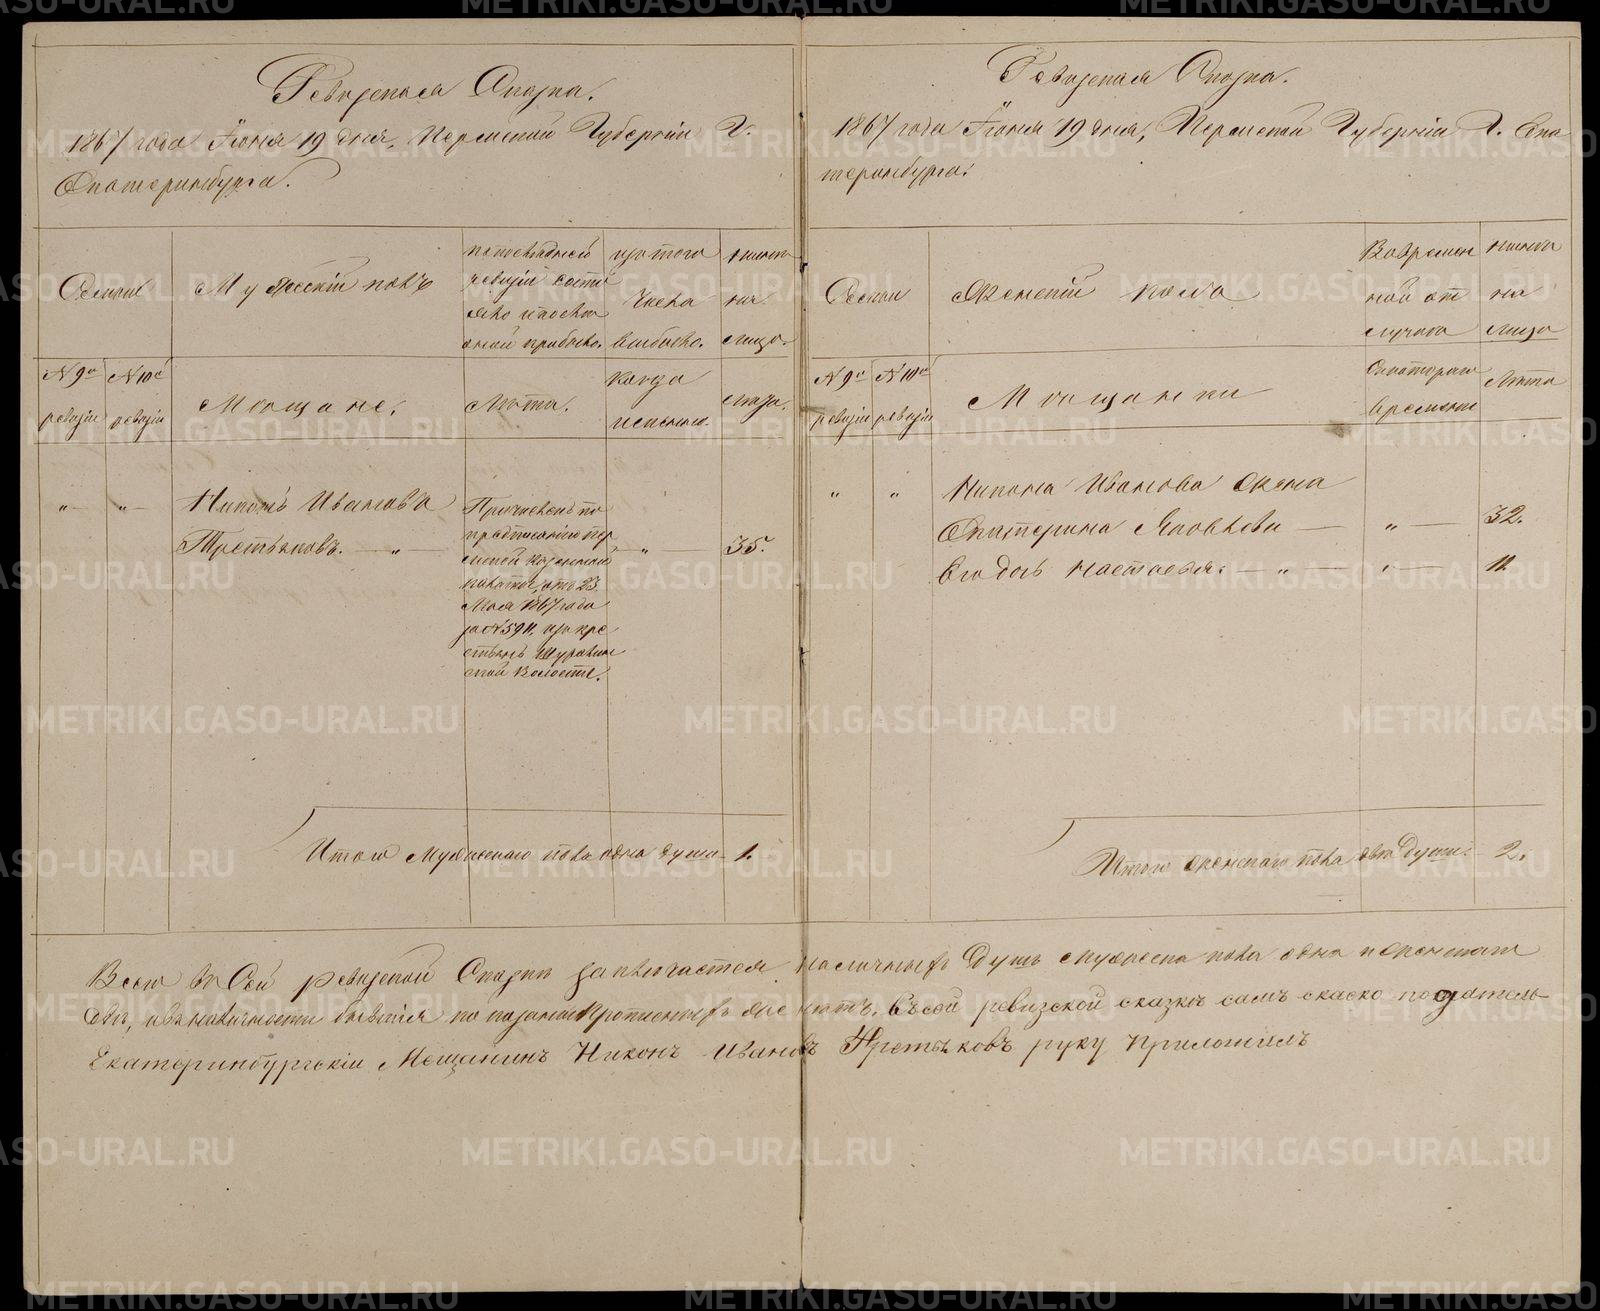 Ревизская Сказка.
1867 года Іюня 19 дня, Пермской Губерніи Г.
Екатеринбурга.
Семьи
Мужескій полъ
по последней
ревизіи состо
яло и после
оной прибыло.
изъ того
числа
выбыло.
ныне
на
лицо.
№ 9й
ревизіи
№ 10й
ревизіи
Мещане.
Лета.
когда
именно.
Лета.
" "
Никонъ Ивановъ
Третьяковъ. — " —
Причисленъ по
предписанію пер
мской казенной
палаты, отъ 23
Мая 1867 года
за № 5911. изъ кре
стьянъ
ской волости.
"
35.
Итого Мужескаго пола одна душа 1.
Ревизская Сказка.
1867 года Іюня 19 дня, Пермской Губерніи Г. Ека
теринбурга.
Семьи
Женскій полъ
Во времен
ной от
лучке
ныне
на
лицо
№ 9й
ревизіи
№ 10й
ревизіи
Мещанки
Съ котораго
времени
Лета
" "
Никона Иванова жена
Екатерина Яковлева — " — 32.
Его дочь Настасья. — " — " — 11
Итого женскаго пола две души. 2.
Всего въ сей ревизской Сказке заключается наличныхъ душъ мужеска пола одна и женскаго
две, и въ наличности бывшія по показаній прописныхъ не нетъ. Къ сей ревизской сказкъ самъ сказко податель
Екатеринбургскіи Мещанинъ Никонъ Ивановъ Третьяковъ руку приложилъ
METRIKI.GASO-URAL.RU